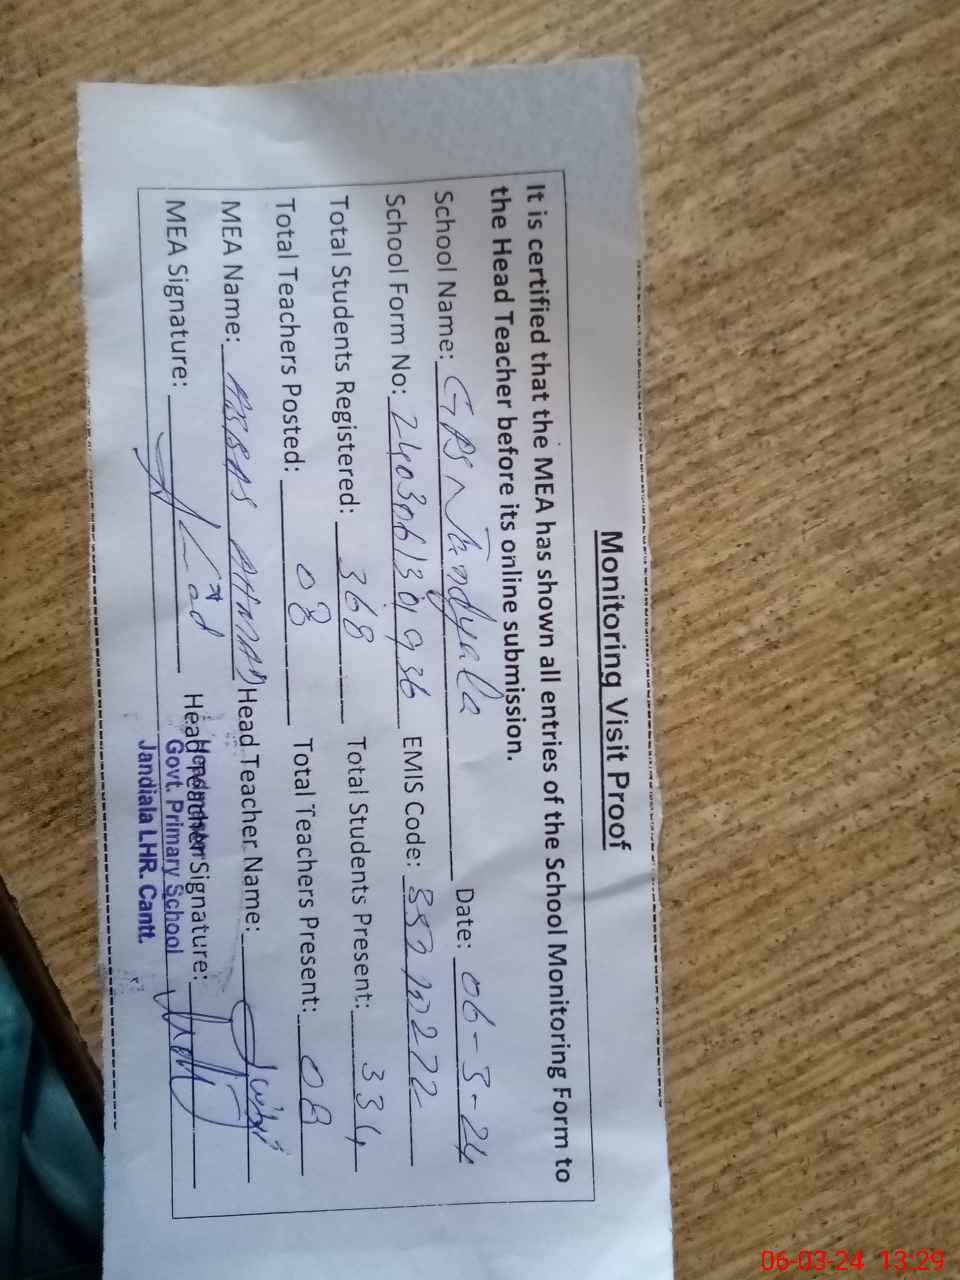 Monitoring Visit Proof
It is certified that the MEA has shown all entries of the School Monitoring Form to
the Head Teacher before its online submission.
School Name: GPS Jandyala Date: 06-3-24
School Form No: 2403061301936 EMIS Code:
Total Students Registered: 368 Total Students Present: 334
Total Teachers Posted: 08 Total Teachers Present: 08
MEA Name: ABBAS AHMAD Head Teacher Name:
MEA Signature: Head Teacher Signature:
Govt. Primary School
Jandiala LHR. Cantt.
06-03-24 13:29